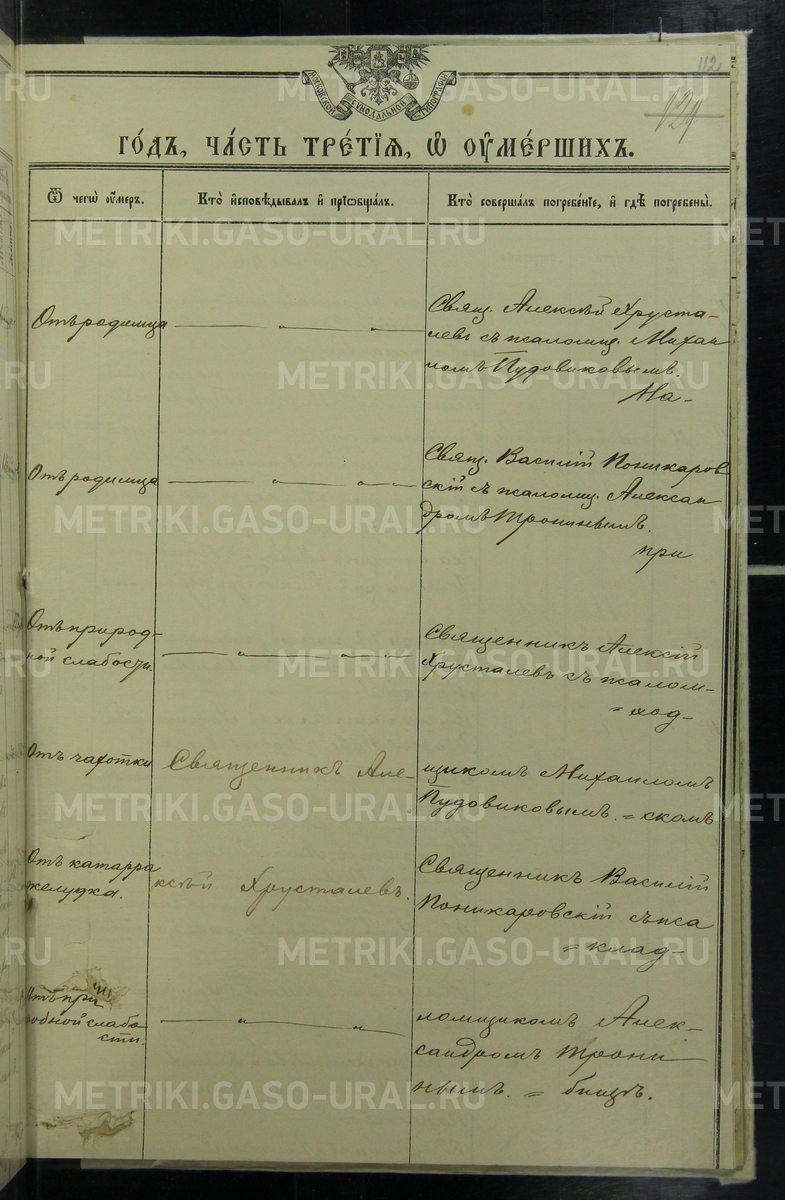 112
124
МОСКОВСКОЙ СѴНОДАЛЬНОЙ ТИПОГРАФІИ
ГО́ДЪ, ЧА́СТЬ ТРЕ́ТІѦ, Ѡ҆ ОУ҆МЕ́РШИХЪ.
Ѿ чегѡ̀ оу҆́меръ.
Кто̀ и҆сповѣ́дывалъ и҆ прїѡбща́лъ.
Кто̀ соверша́лъ погребе́нїе, и҆ гдѣ̀ погребены̀.
Отъ родимца — „ — „ —
Свящ. Алексѣй Хруста-
левъ съ псаломщ. Михаи
ломъ Пудовиковымъ.
На-
Отъ родимца — „ — „ —
Свящ. Василій Поникаров
скій съ псаломщ. Алексан
дромъ Трониным​ъ.
при
Отъ природ-
ной слабости. — „ — „ —
Священникъ Алексій
Хрусталевъ съ псалом-
= ход-
Отъ чахотки
Священникъ Але-
щикомъ Михаиломъ
Пудовиковымъ. = скомъ
Отъ катарра
желудка.
ксѣй Хрусталевъ.
Священникъ Василій
Поникаровскій съ пса
= клад-
Отъ при
родной слабо
сти. — „ — „ —
ломщикомъ Алек-
сандромъ Трони
нымъ. = бищѣ.
METRIKI.GASO-URAL.RU